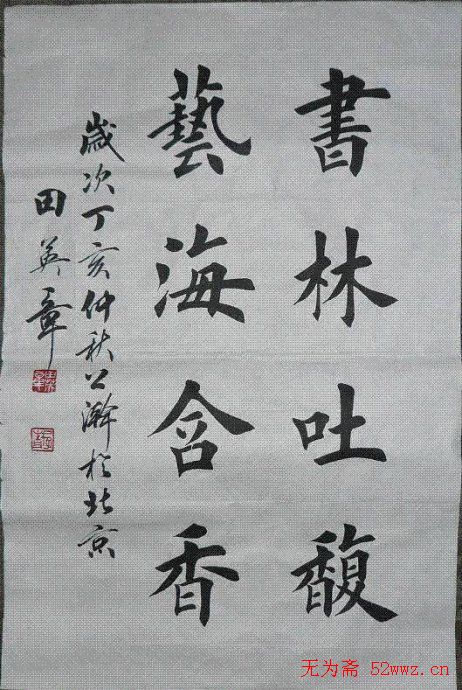 書林吐馥
藝海含香
歲次丁亥仲秋之澣於北京
田英章
无为斋 52wwz.cn